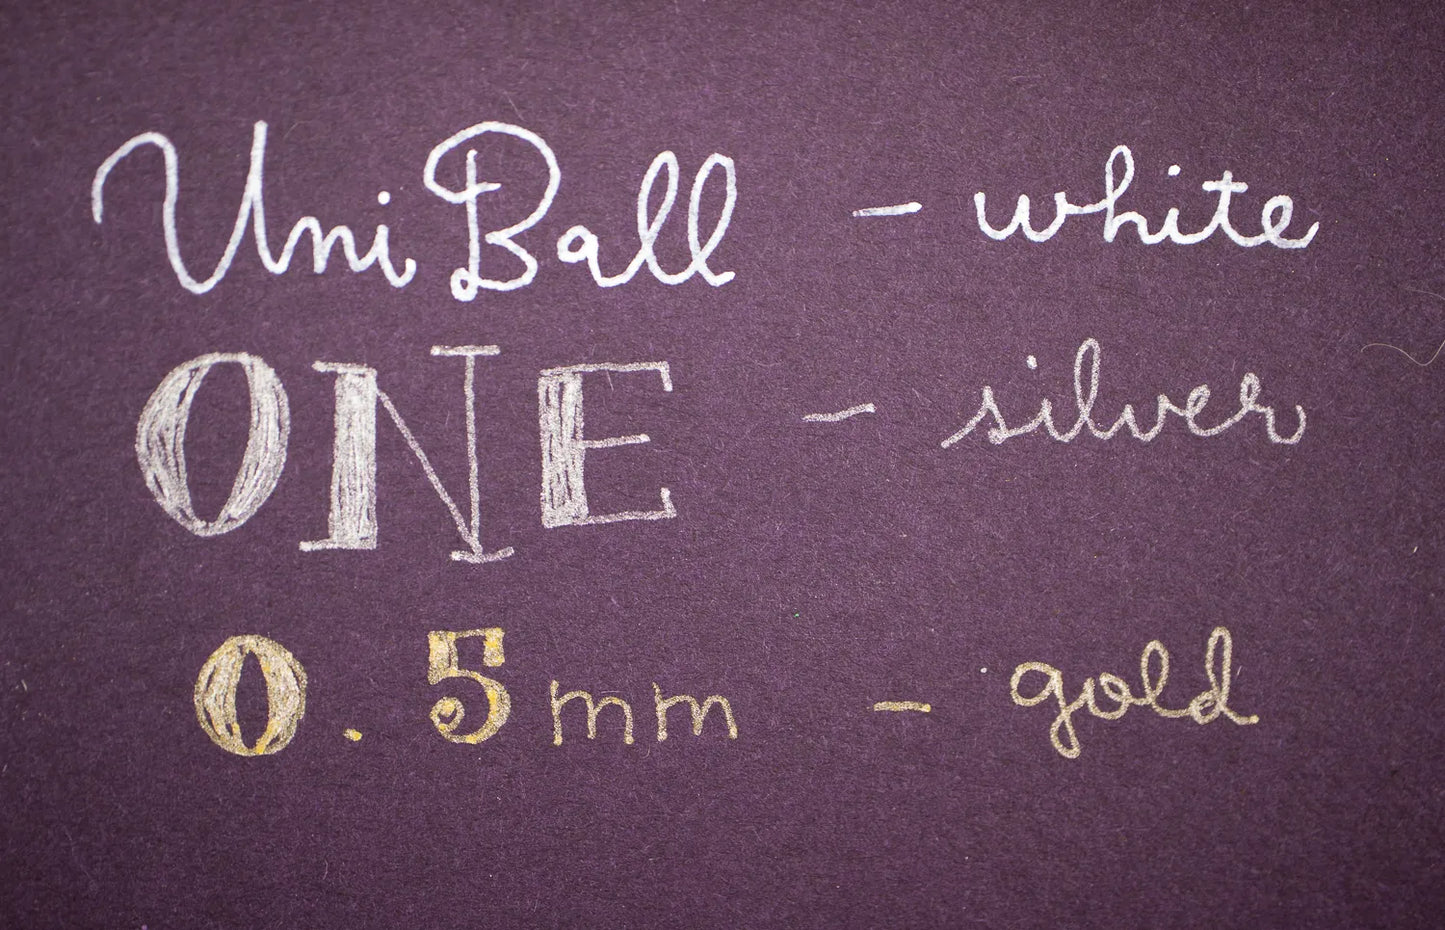 Uni Ball - white
ONE - silver
0.5mm - gold